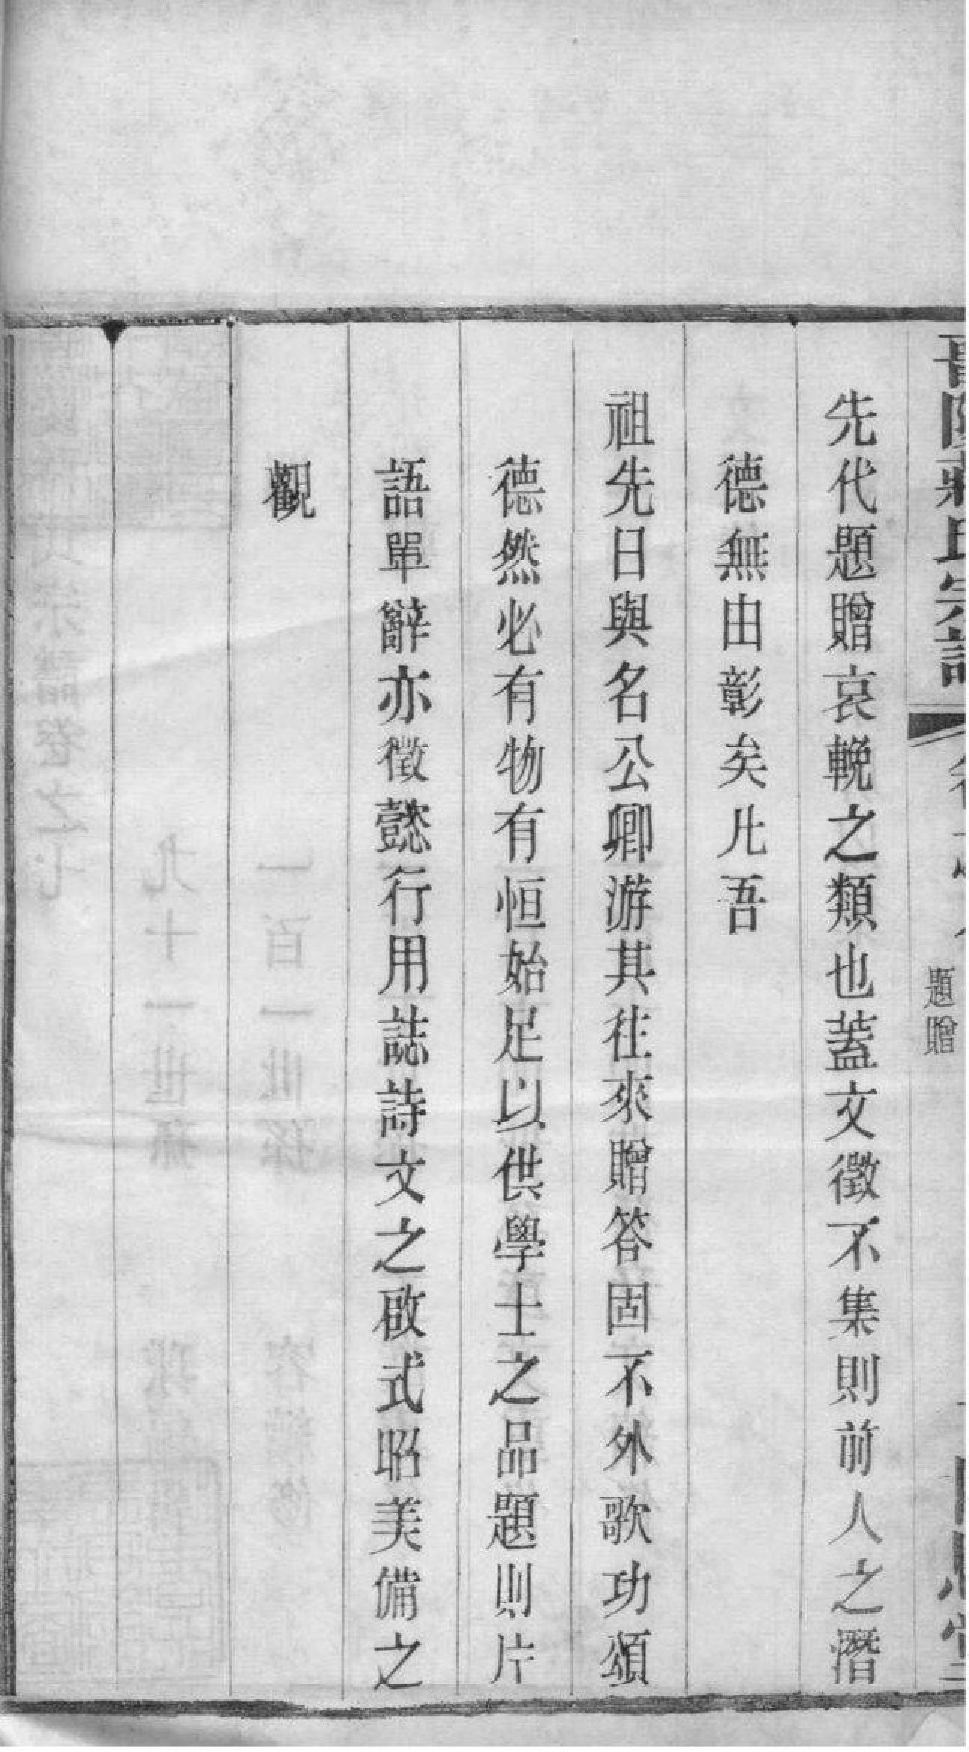 晉陵蔣氏宗譜
題贈
先代題贈哀輓之類也蓋文徵不集則前人之潛
德無由彰矣凡吾
祖先日與名公卿游其往來贈答固不外歌功頌
德然必有物有恒始足以供學士之品題則片
語單辭亦徵懿行用誌詩文之啟式昭美備之
觀